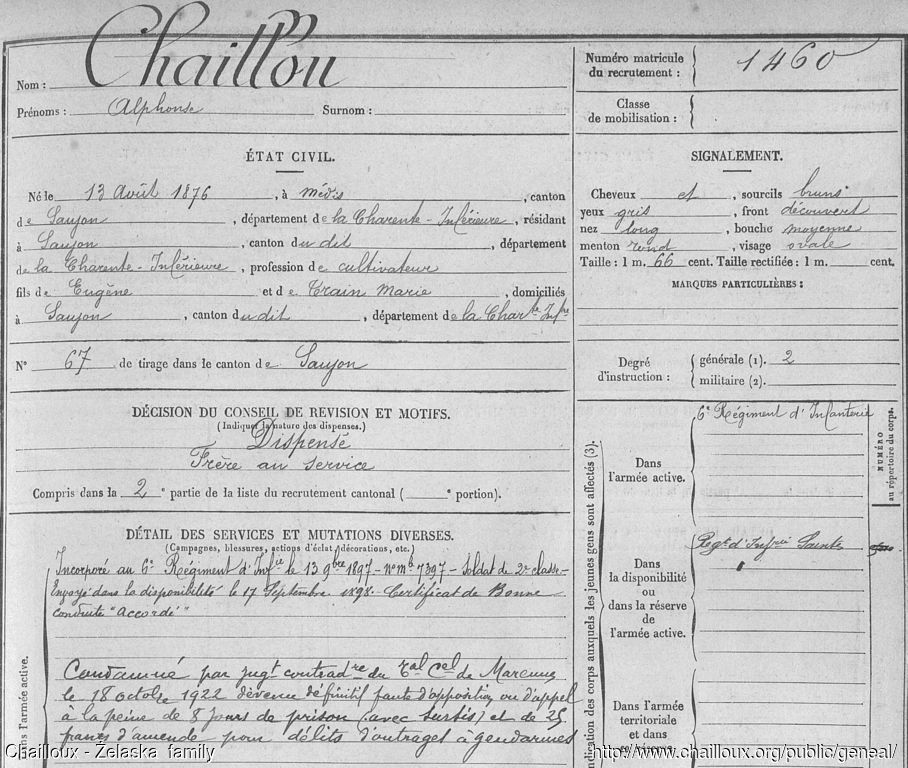 Chaillou
Nom :
Prénoms : Alphonse Surnom :
Numéro matricule
du recrutement : 1460
Classe
de mobilisation :
ÉTAT CIVIL.
Né le 13 Août 1876 , à Médis , canton
de Saujon , département de la Charente-Inférieure , résidant
à Saujon , canton du dit , département
de la Charente-Inférieure , profession de cultivateur
fils de Eugène et de Train Marie , domiciliés
à Saujon , canton du dit , département de la Charte Infre
N° 67 de tirage dans le canton de Saujon
SIGNALEMENT.
Cheveux et , sourcils bruns
yeux gris , front découvert
nez long , bouche moyenne
menton rond , visage ovale
Taille : 1 m. 66 cent. Taille rectifiée : 1 m. cent.
MARQUES PARTICULIÈRES :
Degré
d'instruction :
générale (1). 2
militaire (2).
DÉCISION DU CONSEIL DE REVISION ET MOTIFS.
(Indiquer la nature des dispenses.)
Dispensé
Frère au service
Compris dans la 2e partie de la liste du recrutement cantonal ( e portion).
DÉTAIL DES SERVICES ET MUTATIONS DIVERSES.
(Campagnes, blessures, actions d'éclat, décorations, etc.)
Incorporé au 6e Régiment d'Infie le 13 9bre 1897 - No Mle 7397 - Soldat de 2e classe -
Envoyé dans la disponibilité le 17 Septembre 1898. Certificat de Bonne
conduite "Accordé"
Condamné par jugt contradre du tral Cel de Marennes
le 18 octobre 1922 devenu définitif faute d'opposition ou d'appel
à la peine de 8 jours de prison (avec sursis) et de 25
francs d'amende pour délits d'outrages à gendarmes
Dans l'armée active.
Indication des corps auxquels les jeunes gens sont affectés (3).
NUMÉRO
au répertoire du corps.
6e Régiment d'Infanterie
Dans
l'armée active.
Regt d'Infrie Saintes
Dans
la disponibilité
ou
dans la réserve
de
l'armée active.
Dans l'armée
territoriale
et dans
sa réserve.
Chailloux - Zelaska family
http://www.chailloux.org/public/geneal/